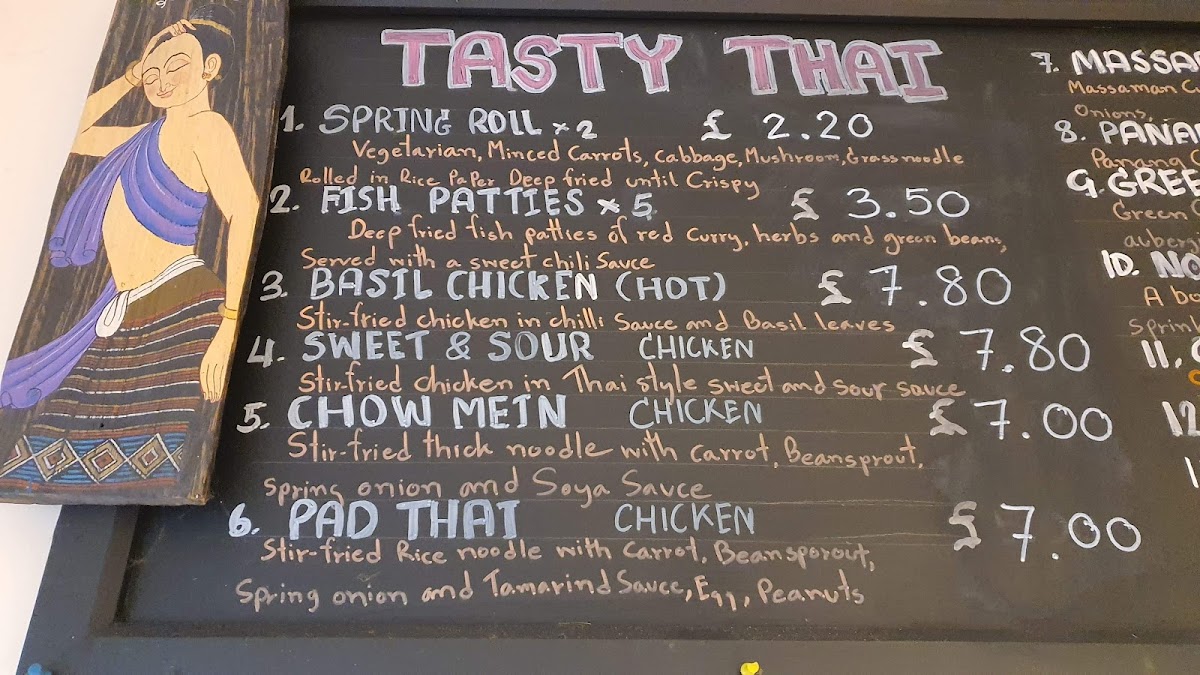 TASTY THAI
1. SPRING ROLL x 2 £ 2.20
Vegetarian, Minced Carrots, Cabbage, Mushroom, Grass noodle
Rolled in Rice Paper Deep fried until Crispy
2. FISH PATTIES x 5 £ 3.50
Deep fried fish patties of red curry, herbs and green beans,
Served with a sweet chili Sauce
3. BASIL CHICKEN (HOT) £ 7.80
Stir-fried chicken in chilli Sauce and Basil leaves
4. SWEET & SOUR CHICKEN £ 7.80
Stir-fried chicken in Thai style sweet and sour sauce
5. CHOW MEIN CHICKEN £ 7.00
Stir-fried thick noodle with carrot, Beansprout,
Spring onion and Soya Sauce
6. PAD THAI CHICKEN £ 7.00
Stir-fried Rice noodle with Carrot, Beansporout,
Spring onion and Tamarind Sauce, Egg, Peanuts
7. MASSA
Massaman C
Onions,
8. PANA
Panang C
9. GREE
Green C
auberg
10. NO
A be
Sprin
11.
12
1